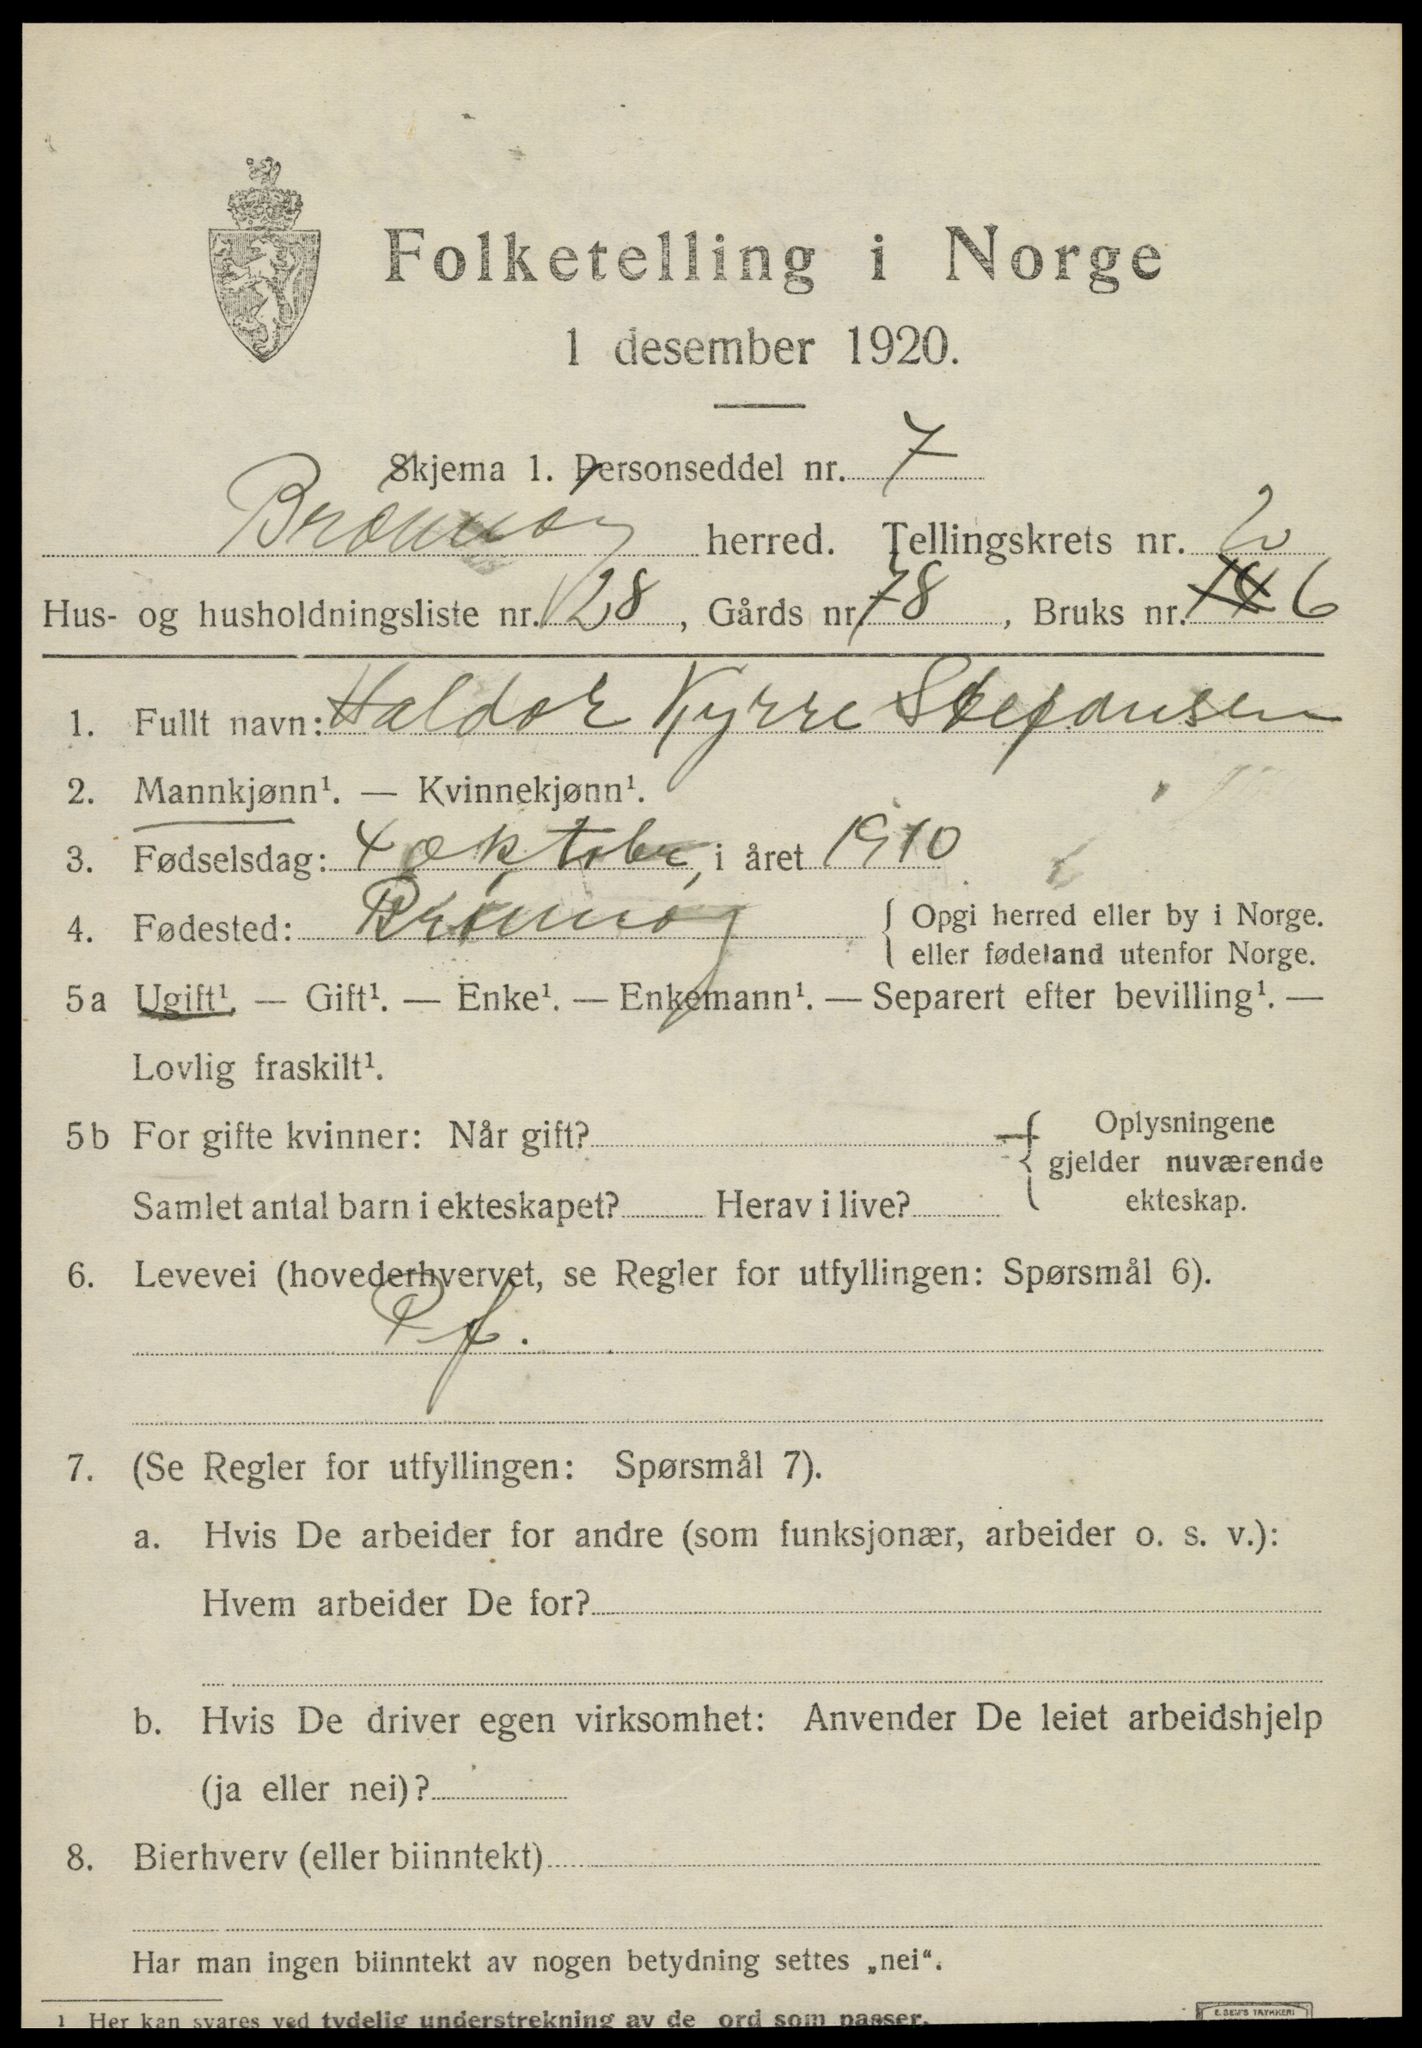 Folketelling i Norge
1 desember 1920.
Skjema 1. Personseddel nr. 7
Brønnøy herred. Tellingskrets nr. 2
Hus- og husholdningsliste nr. 128, Gårds nr. 78, Bruks nr. 6
1. Fullt navn: Haldor Kyrre Stefansen
2. Mannkjønn¹. — Kvinnekjønn¹.
3. Fødselsdag: 4 oktober, i året 1910
4. Fødested: Brønnøy { Opgi herred eller by i Norge.
eller fødeland utenfor Norge.
5a Ugift¹. — Gift¹. — Enke¹. — Enkemann¹. — Separert efter bevilling¹. —
Lovlig fraskilt¹.
5b For gifte kvinner: Når gift? { Oplysningene
gjelder nuværende
Samlet antal barn i ekteskapet? Herav i live? ekteskap.
6. Levevei (hovederhvervet, se Regler for utfyllingen: Spørsmål 6).
P f.
7. (Se Regler for utfyllingen: Spørsmål 7).
a. Hvis De arbeider for andre (som funksjonær, arbeider o. s. v.):
Hvem arbeider De for?
b. Hvis De driver egen virksomhet: Anvender De leiet arbeidshjelp
(ja eller nei)?
8. Bierhverv (eller biinntekt)
Har man ingen biinntekt av nogen betydning settes „nei“.
¹ Her kan svares ved tydelig understrekning av de ord som passer.
E. SEM'S TRYKKERI